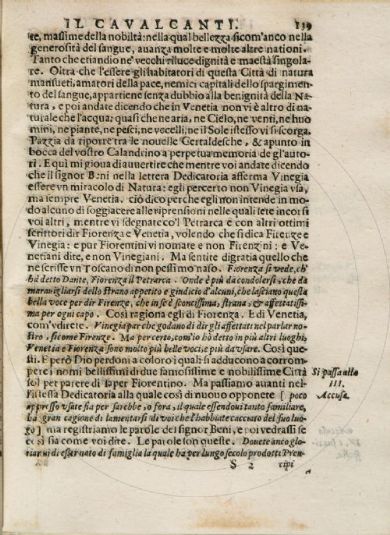 IL CAVALCANTI. 139
te, massime della nobiltà: nella qual bellezza sicom'anco nella
generosità del sangue, auanza molte e molte altre nationi.
Tanto che etiandio ne' vecchi riluce dignità e maestà singola-
re. Oltra che l'essere gli habitatori di questa Città di natura
mansueti, amatori della pace, nemici capitali dello spargimen-
to del sangue, appartiene senza dubbio alla benignità della Na-
tura, e poi andate dicendo che in Venetia non vi è altro di na-
turale che l'acqua: quasi che ne aria, ne Cielo, ne venti, ne huo
mini, ne piante, ne pesci, ne vccelli, ne il Sole istesso vi si scorga.
Pazzia da riporre tra le nouelle Gertaldesche, & apunto in
bocca del vostro Calandrino a perpetua memoria de gl'auto-
ri. E quì mi gioua di auuertire che mentre voi andate dicendo
che il signor Beni nella lettera Dedicatoria afferma Vinegia
essere vn miracolo di Natura: egli per certo non Vinegia vsa,
ma sempre Venetia. ciò dico perche egli non intende in mo-
do alcuno di soggiacere alle riprensioni nelle quali sete incorsi
voi altri, mentre vi sdegnate co'l Petrarca e con altri ottimi
scrittori dir Fiorenza e Venetia, volendo che si dica Firenze e
Vinegia: e pur Fiorentini vi nomate e non Firenzini: e Ve-
netiani dite, e non Vinegiani. Ma sentite di gratia quello che
ne scrisse vn Toscano di non pessimo naso. Fiorenza si vede, ch'
hà detto Dante, Fiorenza il Petrarca. Onde è più da condolersi, che da
marauigliarsi dello strano appetito e giudicio d'alcuni, che lasciano questa
bella voce per dir Firenze, che in sè è sconcissima, strana, & affettatissi-
ma per ogni capo. Così ragiona egli di Fiorenza. E di Venetia,
com'vdirete. Vinegia par che godano di dir gli affettati nel parlar no-
stro, sicome Firenze. Ma per certo, com'io hò detto in più altri luoghi,
Venetia e Fiorenza sono molto più belle voci, e più da vsare. Così que-
sti. E però Dio perdoni a coloro i quali si adducono a corrom-
pere i nomi bellissimi di due famosissime e nobilissime Città
sol per parere di saper Fiorentino. Ma passiamo auanti nel-
l'istessa Dedicatoria alla quale così di nuouo opponete [ poco
appresso vsate sia per sarebbe, o fora, il quale essendoui tanto familiare,
hà gran cagione di lamentarsi di voi che l'habbiate cacciato del suo luo-
go] ma registriamo le parole del signor Beni, e poi vedrassi se
così sia come voi dite. Le parole son queste. Douete anco glo-
riarui di esser nato di famiglia la quale ha per lungo secolo prodotti Pren-
Si passa alla
III.
Accusa.
S 2 cipi